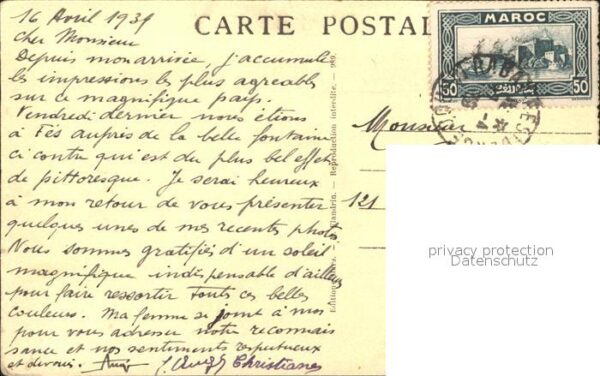 16 Avril 1934
CARTE POSTALE
MAROC
50 50
cher Monsieur
Depuis mon arrivée, j'accumule
les impressions les plus agreables
sur ce magnifique pays.
Vendredi dernier nous étions
à Fès auprès de la belle fontaine
ci contre qui est du plus bel effet
de pittoresque. Je serai heureux
à mon retour de vous présenter
quelques unes de mes recents photos
Nous sommes gratifiés d'un soleil
magnifique indispensable d'ailleurs
pour faire ressortir toutes ces belles
couleurs. Ma femme se joint à moi
pour vous adresser notre reconnais
sance et nos sentiments respectueux
et dévoués.
Christianes
Flandrin. — Reproduction interdite. — 989
Monsieur
121
privacy protection
Datenschutz